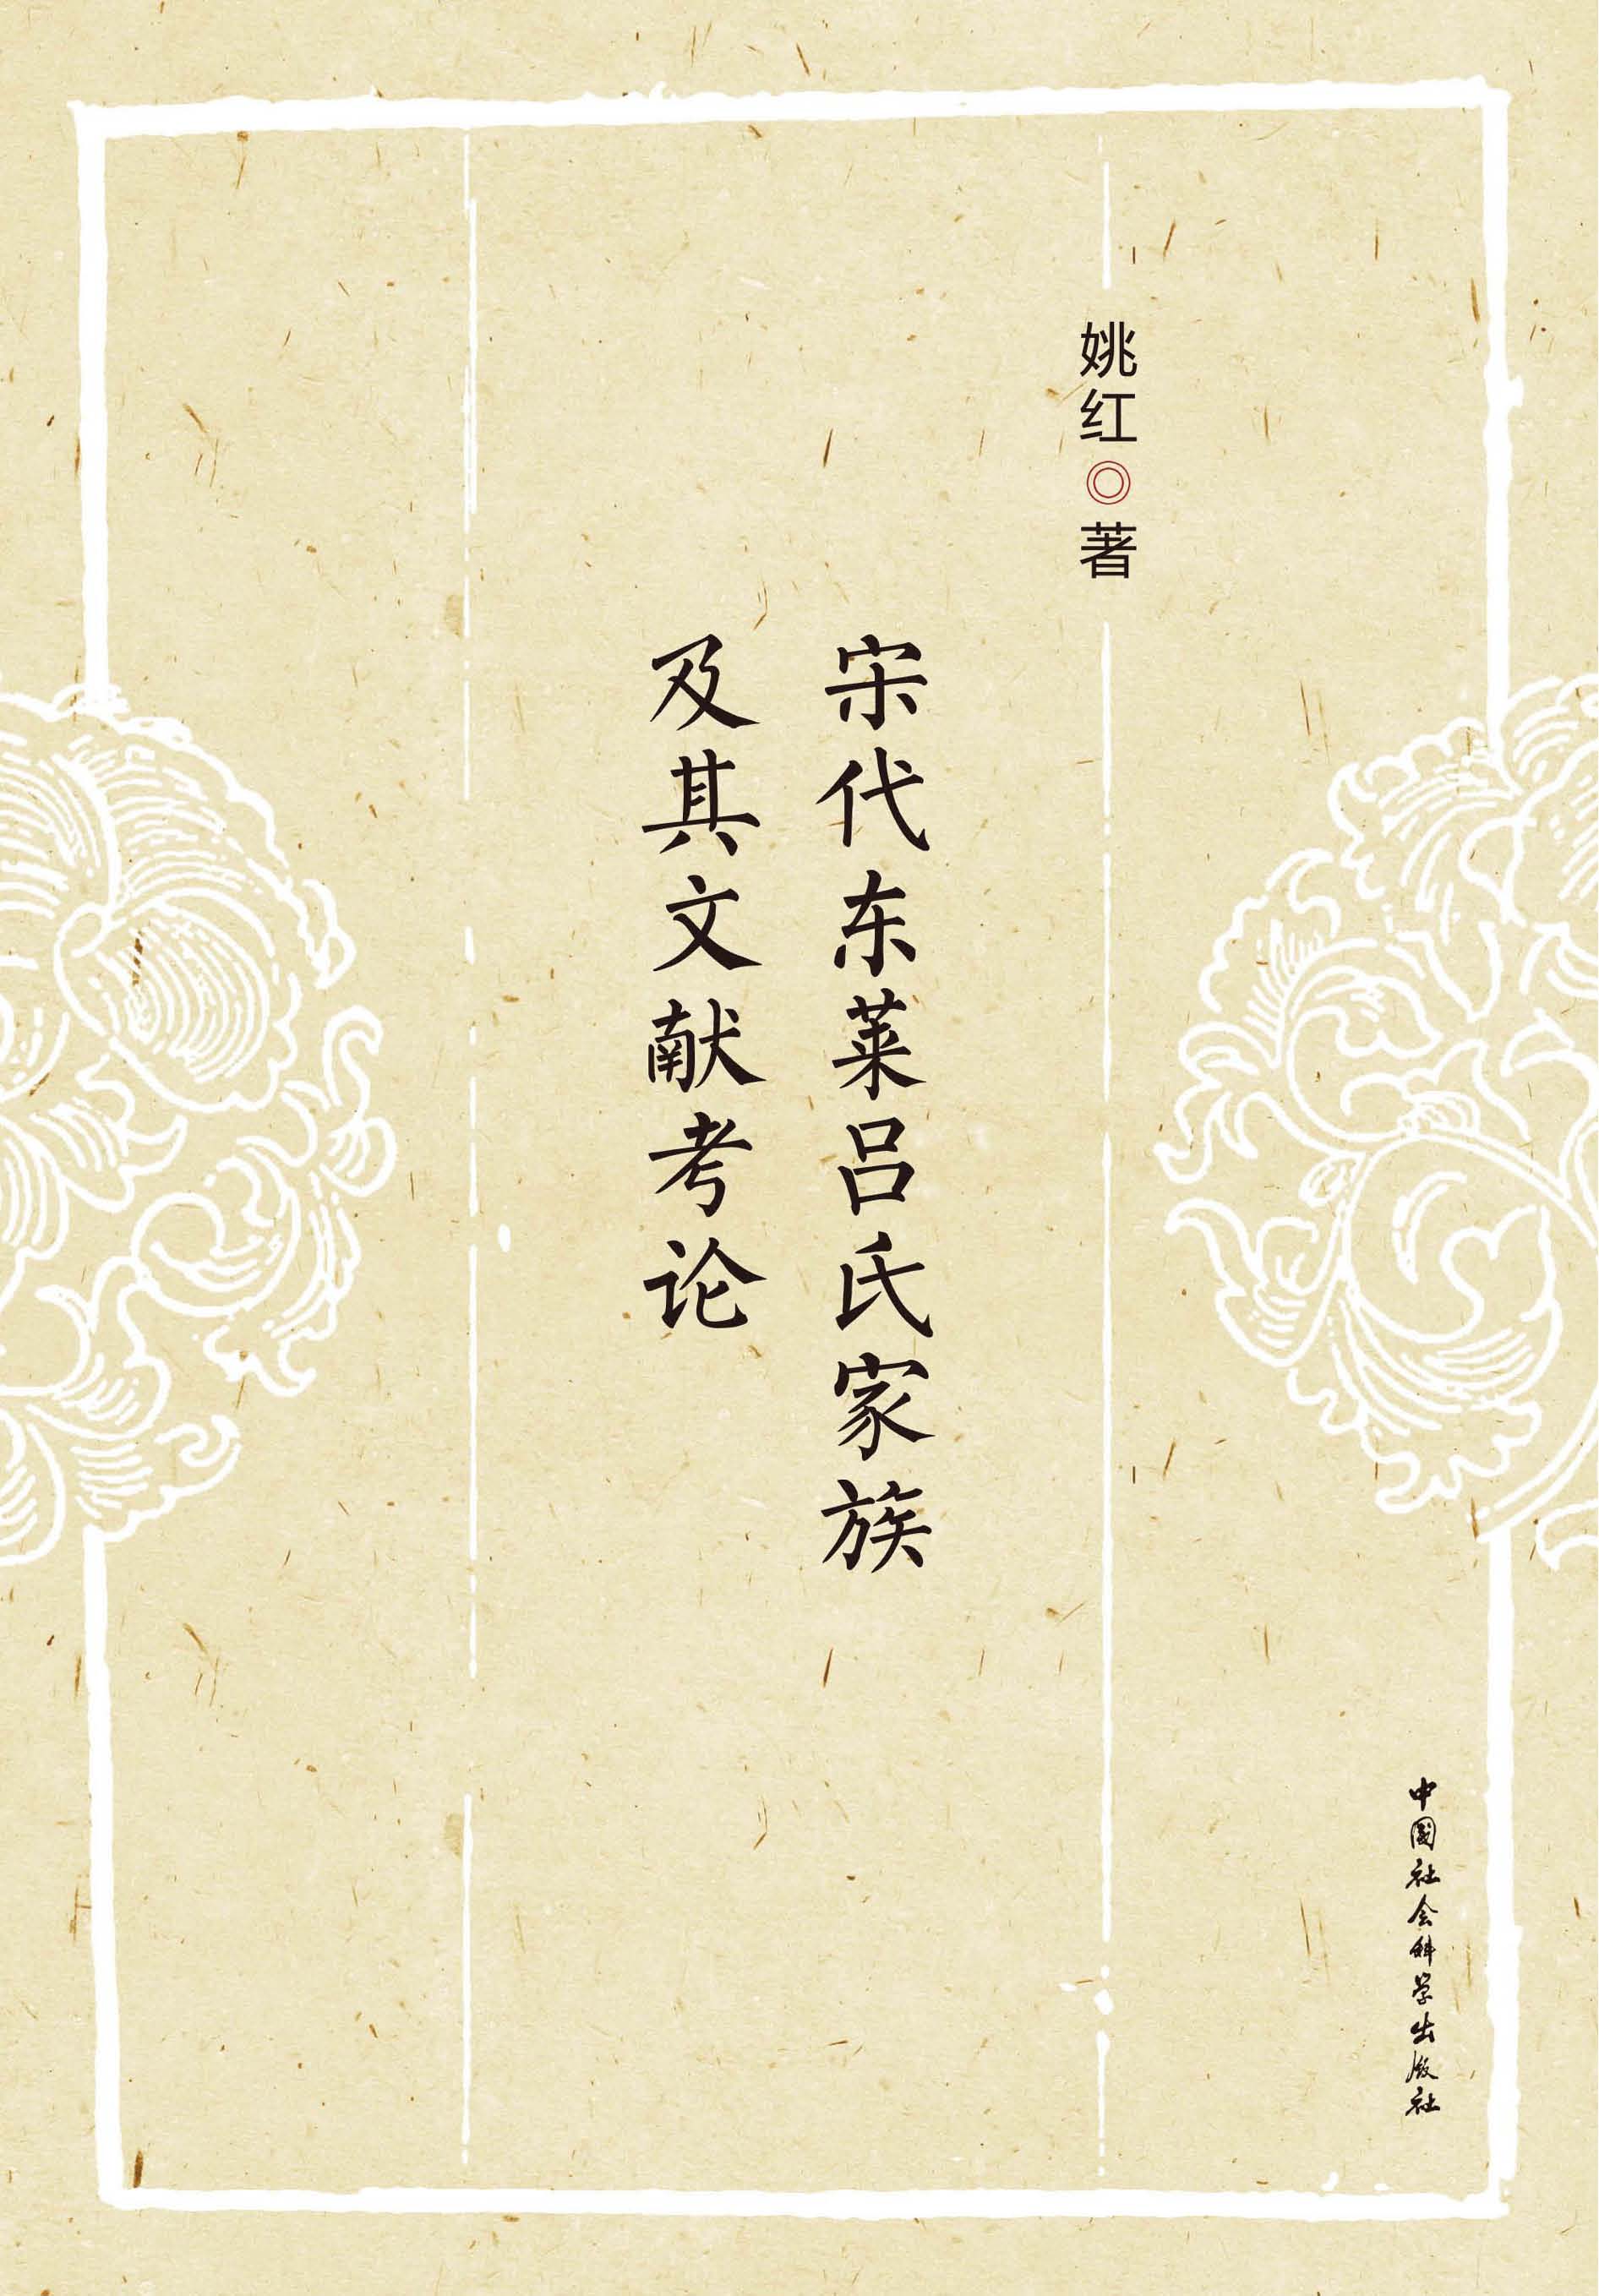 姚红◎著
宋代东莱吕氏家族
及其文献考论
中国社会科学出版社